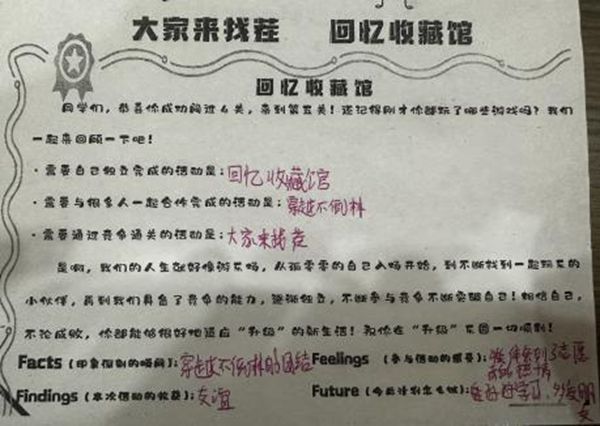 大家来找茬 回忆收藏馆
回忆收藏馆
同学们，恭喜你成功闯过4关，来到第五关！还记得刚才你都玩了哪些游戏吗？我们
一起来回顾一下吧！
·需要自己独立完成的活动是：回忆收藏馆
·需要与很多人一起合作完成的活动是：穿越不倒林
·需要通过竞争通关的活动是：大家来找茬
是啊，我们的人生就好像游乐场，从孤零零的自己入场开始，到不断找到一起玩乐的
小伙伴，再到我们具备了竞争的能力，逐渐独立，不断参与竞争不断突破自己！相信自己，
不论成败，你都能够很好地适应“升级”的新生活！祝你在“升级”乐园一切顺利！
Facts（印象深刻的瞬间）：穿越不倒林的团结 Feelings（参与活动的感受）：
Findings（本次活动的收获）：友谊 Future（今后计划怎么做）：要好好学习，多交朋
友